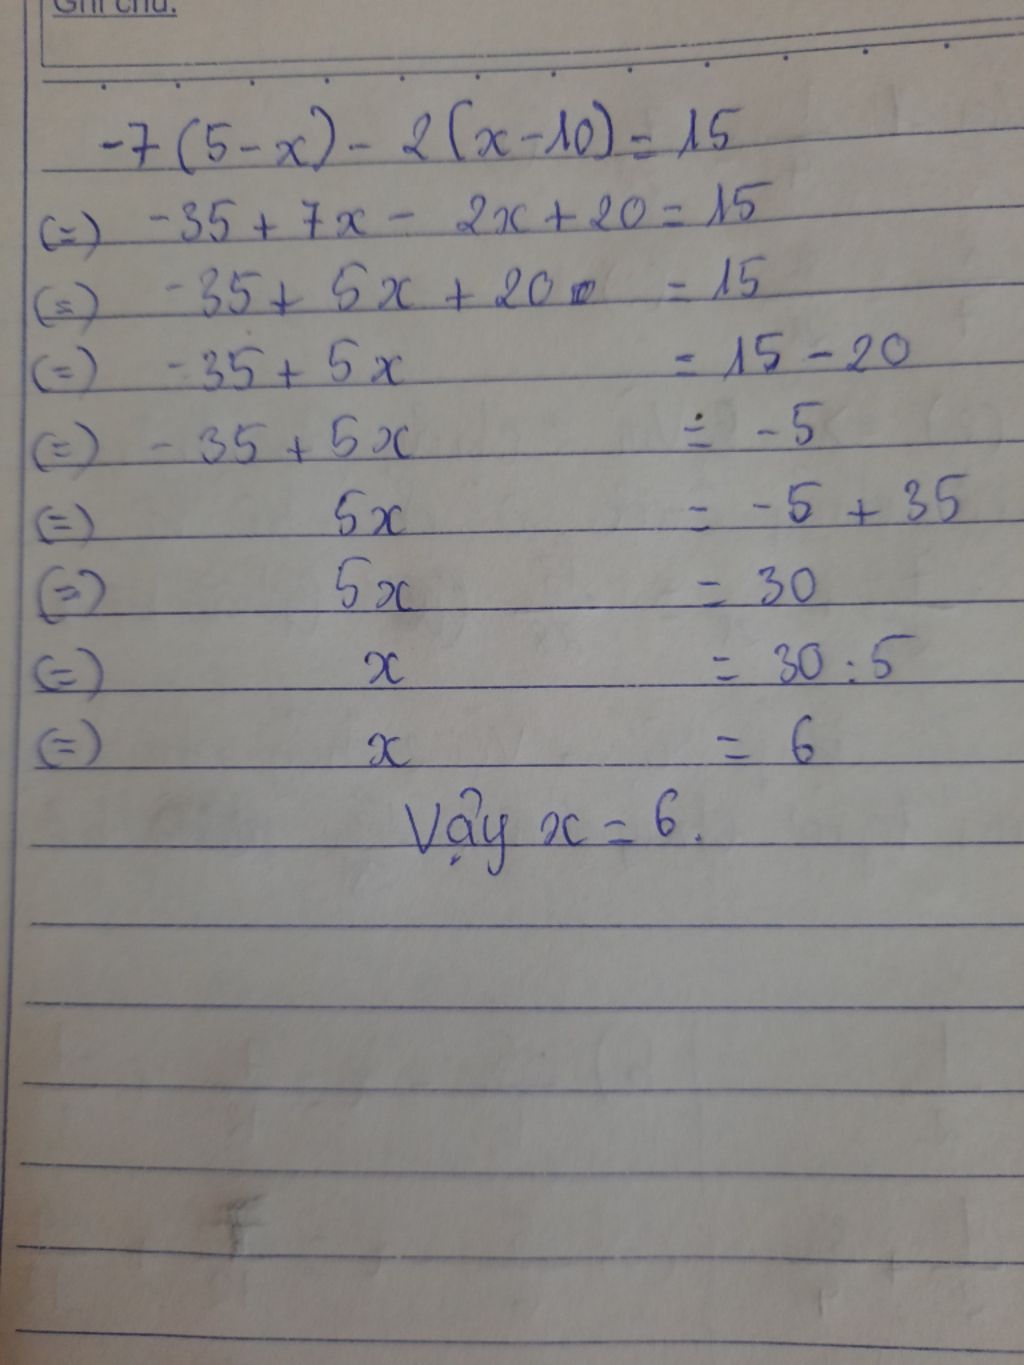 Ghi chú:
-7(5-x)- 2(x-10)=15
(=) -35+7x- 2x+20=15
(=) -35+ 5x +20 =15
(=) -35+5x = 15-20
(=) -35+5x = -5
(=) 5x = -5 + 35
(=) 5x = 30
(=) x = 30:5
(=) x = 6
Vậy x=6.